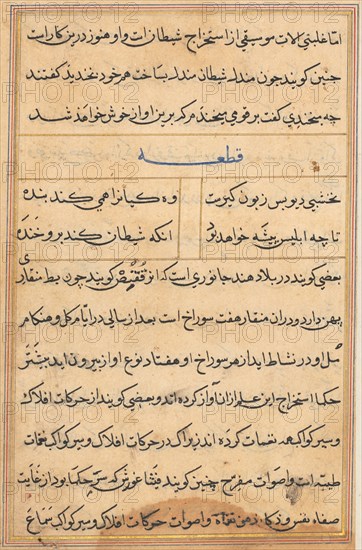 اما غلبتی آلات موسیقی از استخراج شیطان است و او هنوز درین کار است
چنین کویند جون مندل شیطان مندل بساخت هر خود بخندید کفتند
چه میخندی کفت بر قومی میخندم که برین اواز خوش خواهند شد
قطعه
نخشبی دیو بس زبون کیرست
وه کیانرا همی کند بنده
تا چه ابلیس پیشه خواهد بود
انکه شیطان کند برو خنده
بعضی کویند در بلاد هند جانوری است که انرا ققنس کویند چون بط منقاری
پهن دارد و در ان منقار هفت سوراخ است بعد از سالی در ایام کل و هنکام
مل او در نشاط اید از هر سوراخ او هفتاد نوع اواز بیرون اید بیشتر
حکما استخراج این علم از ان آواز کرده اند و بعضی کویند از حرکات افلاک
و سیر کواکب نغمات کرده اند زیراک در حرکات افلاک و سیر کواکب نغمات
طیبه است و اصوات مفرح چنین کویند فیثاغورس که سر حکما بود از غایت
صفاء نفس و ذکاء ذهن نغمات و اصوات حرکات افلاک و سیر کواکب سماع